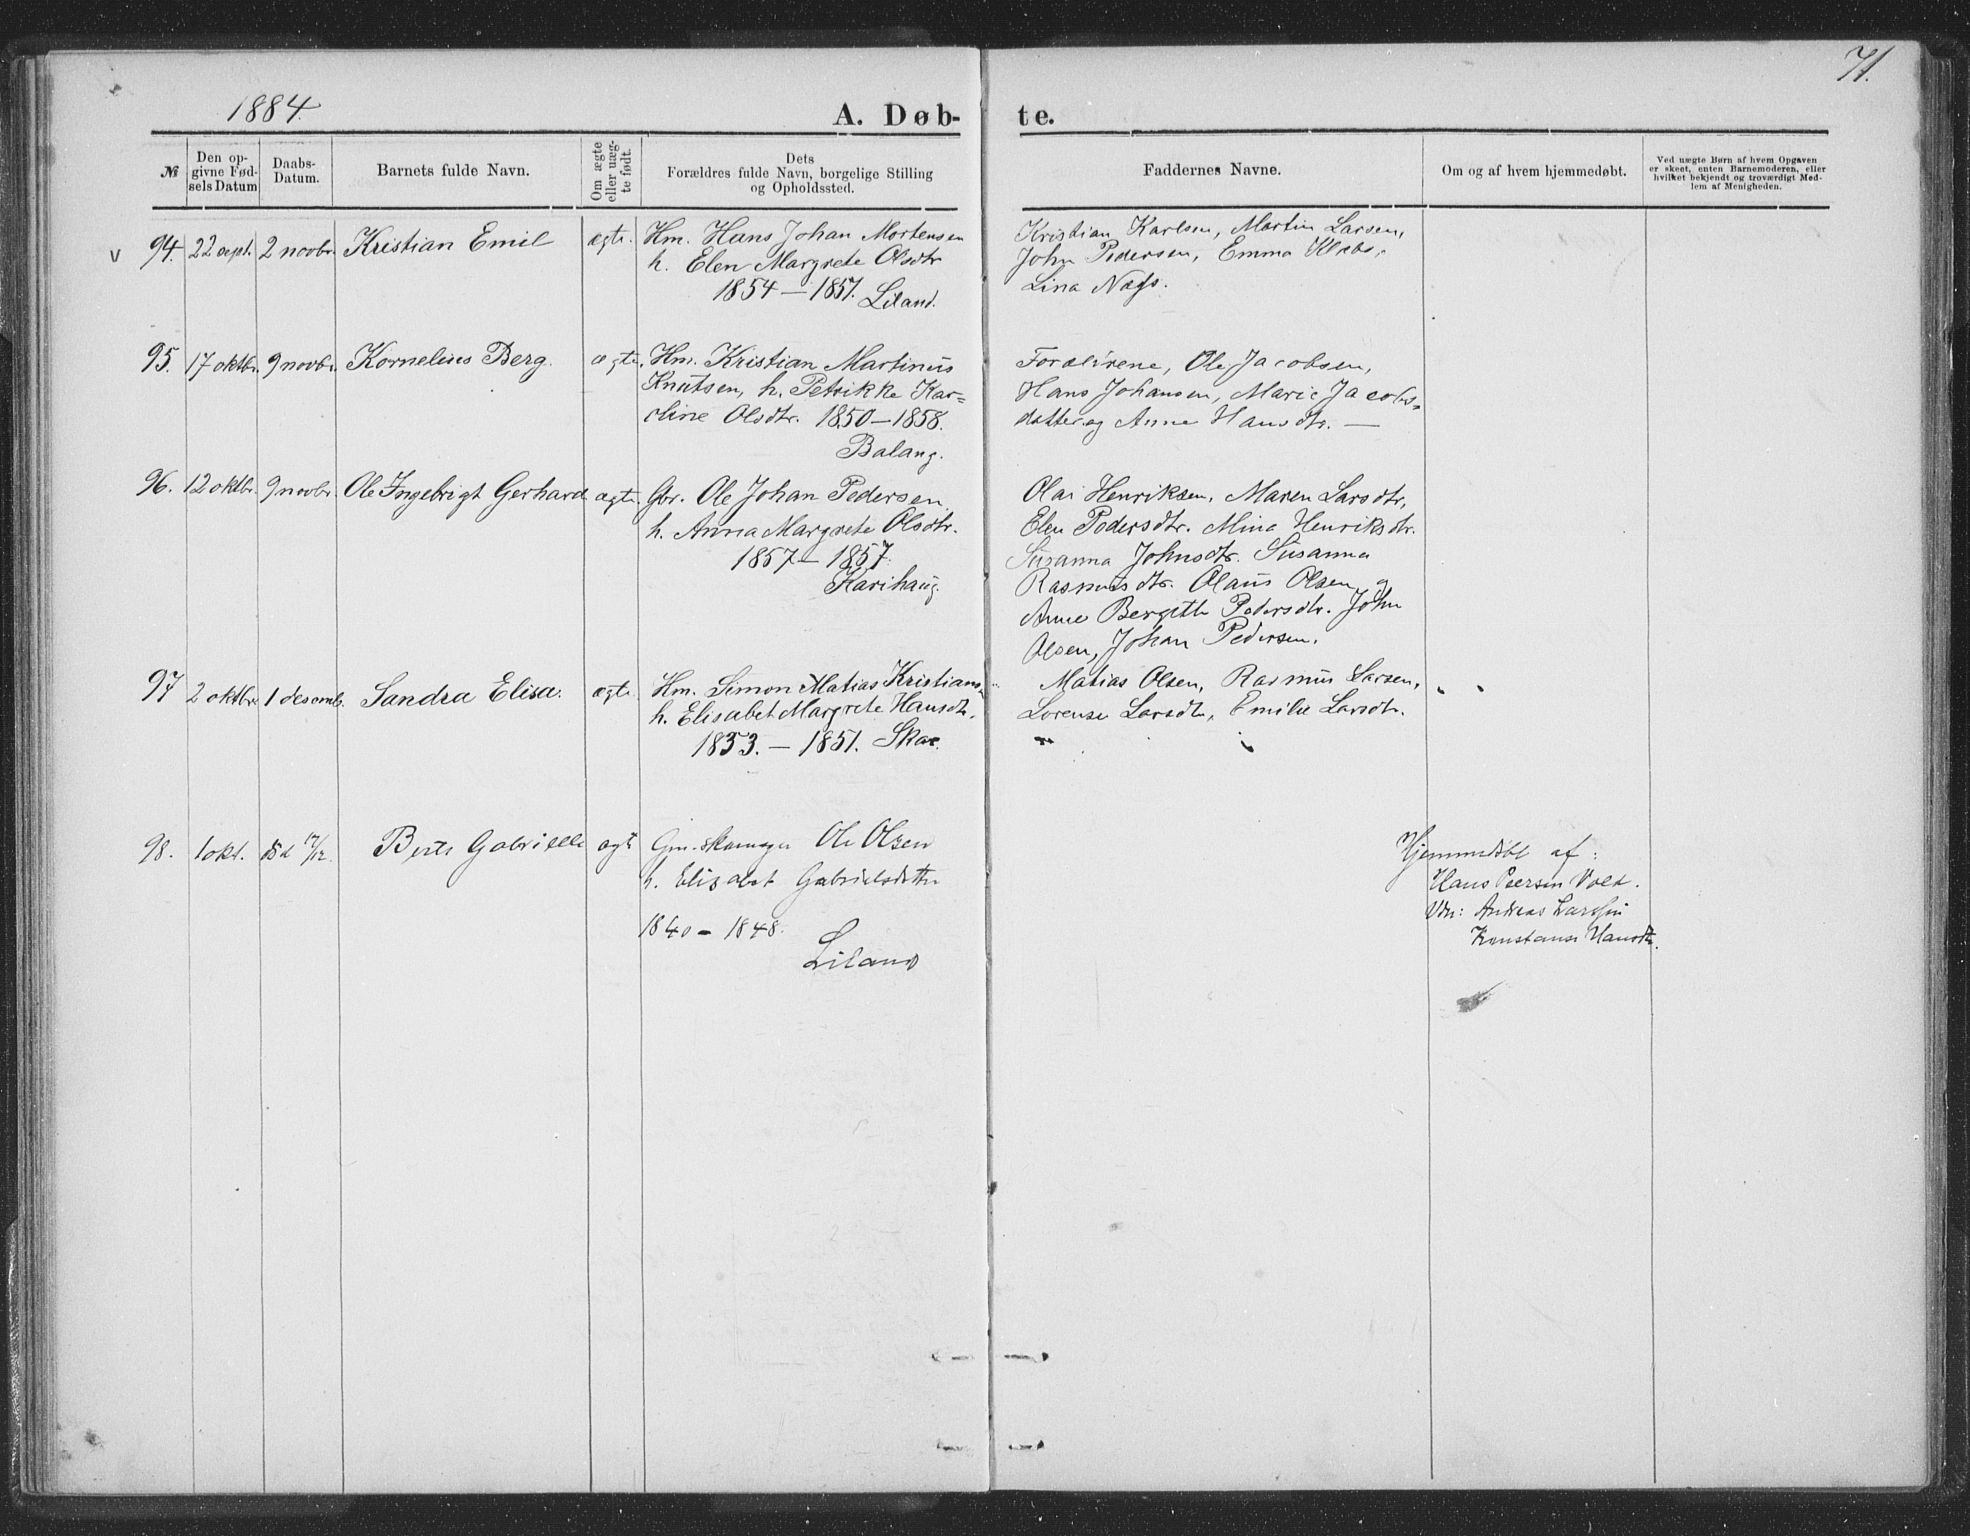 71.
1884.
A. Døb-
te.
№
Den op-
givne Fød-
sels Datum
Daabs-
Datum.
Barnets fulde Navn.
Om ægte
eller uæg-
te født.
Dets
Forældres fulde Navn, borgelige Stilling
og Opholdssted.
Faddernes Navne.
Om og af hvem hjemmedøbt.
Ved uægte Børn af hvem Opgaven
er skeet, enten Barnemoderen, eller
hvilket bekjendt og troværdigt Med-
lem af Menigheden.
v 94. 22 sept. 2 novbr. Kristian Emil ægte. Hm. Hans Johan Mortensen
h. Elen Margrete Olsdtr
1854 – 1857. Liland.
Kristian Karlsen, Martin Larsen,
John Pedersen, Emma Klæbo,
Lina Næss.
95. 17 oktbr. 9 novbr. Kornelius Berg. ægte. Hm. Kristian Martinus
Knutsen, h. Petrikke Kar=
oline Olsdtr. 1850 – 1858.
Balang.
Forældrene, Ole Jacobsen,
Hans Johansen, Marie Jacobs=
datter og Anne Hansdtr. —
96. 12 oktbr. 9 novbr. Ole Ingebrigt Gerhard ægte. Gbr. Ole Johan Pedersen
h. Anna Margrete Olsdtr.
1857 – 1857.
Karihaug.
Olai Henriksen, Maren Larsdtr,
Elen Pedersdtr. Mina Henriksdtr.
Susanna Johnsdtr. Susanna
Rasmusdtr. Olaus Olsen,
Anne Bergitte Pedersdtr. John
Olsen, Johan Pedersen.
97 2 oktbr. 1 desemb. Sandra Elisa. ægte. Hm. Simon Matias Kristians
h. Elisabet Margrete Hansdtr.
1853. – 1851. Skar.
Matias Olsen, Rasmus Larsen,
Lorense Larsdtr, Emilie Larsdtr.
98. 1 okt. 17/12. Berte Gabrielle ægte Gm. skomager Ole Olsen
h. Elisabet Gabrielsdatter
1840 – 1848.
Liland
Hjemmedøbt af:
Hans Peersen Vold.
Vdn: Andreas Larssen
Konstanse Hansdtr.